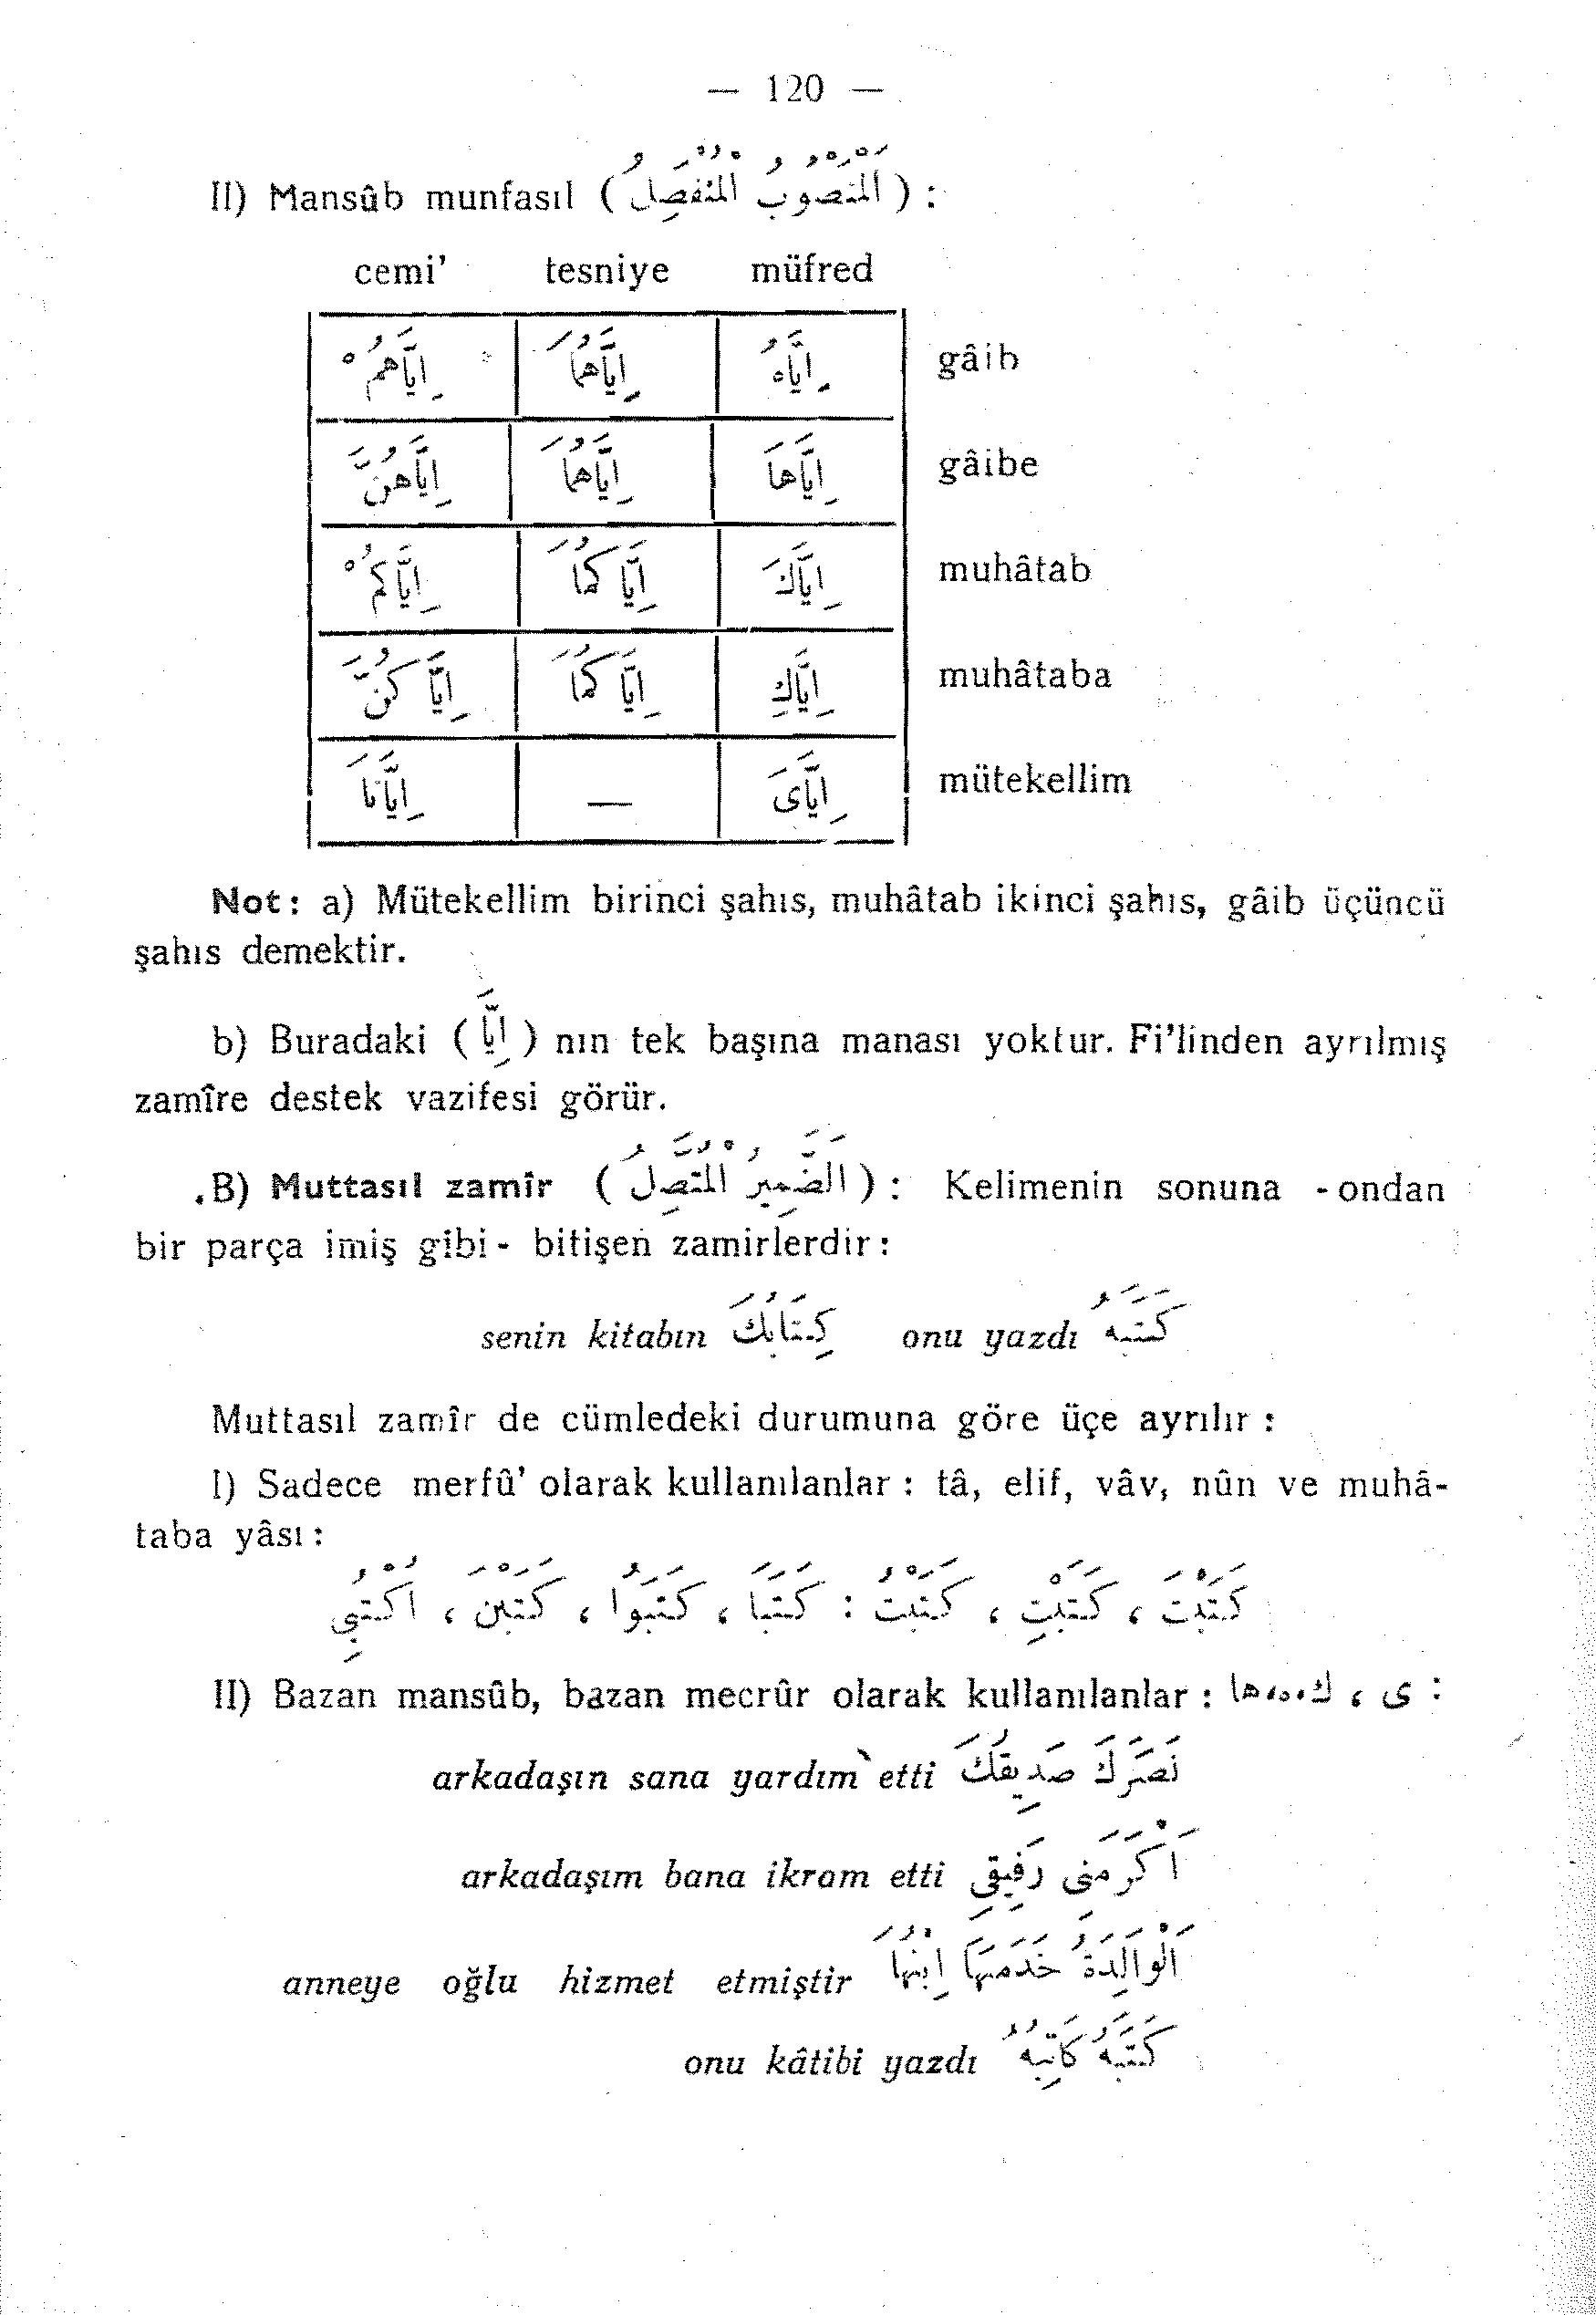 — 120 —
II) Mansûb munfasıl ( اَلْمَنْصُوبُ الْمُنْفَصِلُ ) :
cemi' tesniye müfred
اِيَّاهُمْ اِيَّاهُمَا اِيَّاهُ gâib
اِيَّاهُنَّ اِيَّاهُمَا اِيَّاهَا gâibe
اِيَّاكُمْ اِيَّاكُمَا اِيَّاكَ muhâtab
اِيَّاكُنَّ اِيَّاكُمَا اِيَّاكِ muhâtaba
اِيَّانَا — اِيَّاىَ mütekellim
Not: a) Mütekellim birinci şahıs, muhâtab ikinci şahıs, gâib üçüncü
şahıs demektir.
b) Buradaki ( اِيَّا ) nın tek başına manası yoktur. Fi'linden ayrılmış
zamîre destek vazifesi görür.
.B) Muttasıl zamîr ( اَلضَّمِيرُ الْمُتَّصِلُ ) : Kelimenin sonuna -ondan
bir parça imiş gibi- bitişen zamirlerdir:
senin kitabın كِتَابُكَ onu yazdı كَتَبَهُ
Muttasıl zamîr de cümledeki durumuna göre üçe ayrılır :
I) Sadece merfû' olarak kullanılanlar : tâ, elif, vâv, nûn ve muhâ-
taba yâsı :
كَتَبْتَ ، كَتَبْتِ ، كَتَبْتُ : كَتَبَا ، كَتَبُوا ، كَتَبْنَ ، اُكْتُبِى
II) Bazan mansûb, bazan mecrûr olarak kullanılanlar : ى ، ك،ه،ها :
arkadaşın sana yardım etti نَصَرَكَ صَدِيقُكَ
arkadaşım bana ikram etti اَكْرَمَنِى رَفِيقِى
anneye oğlu hizmet etmiştir اَلْوَالِدَةُ خَدَمَهَا اِبْنُهَا
onu kâtibi yazdı كَتَبَهُ كَاتِبُهُ